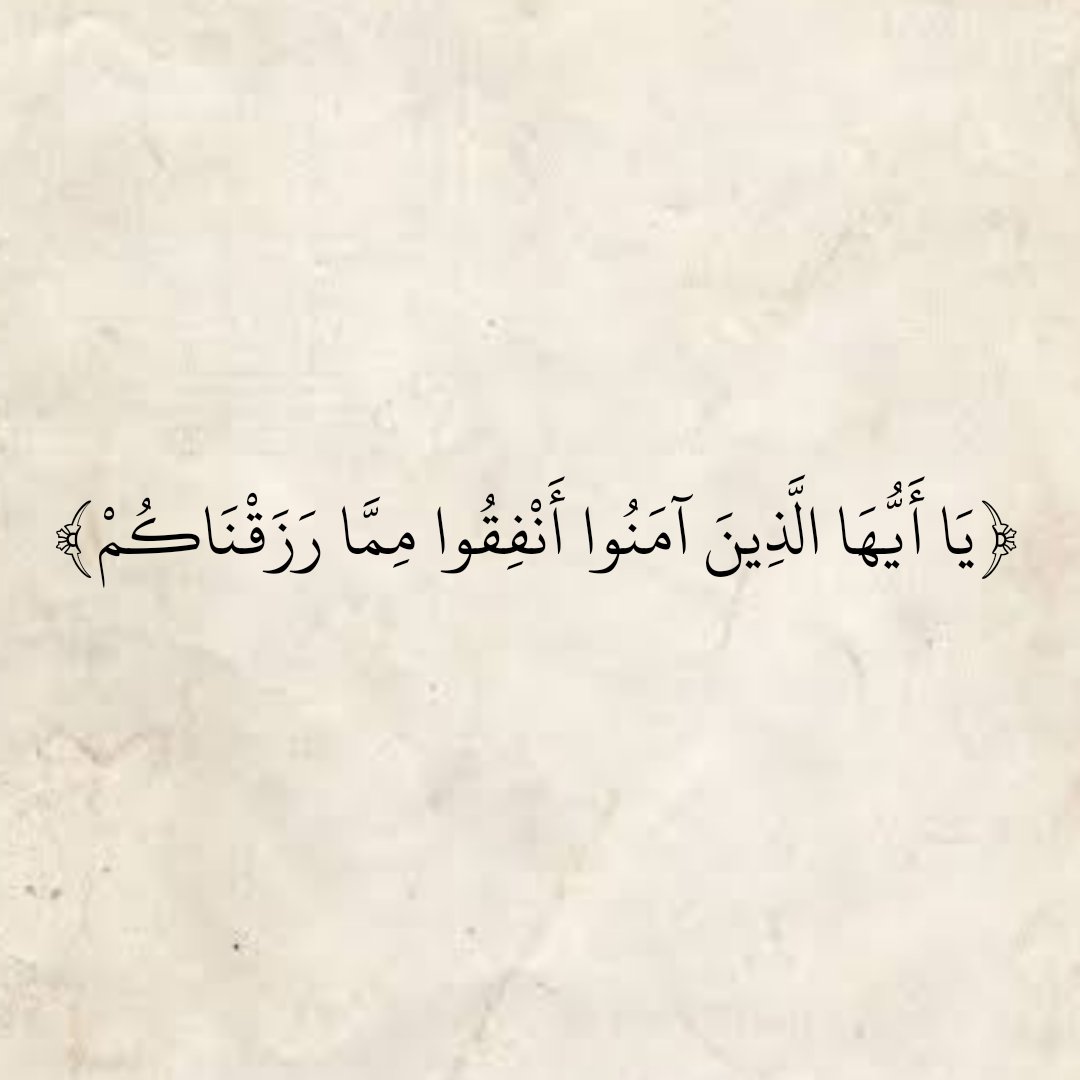 ﴿يَا أَيُّهَا الَّذِينَ آمَنُوا أَنْفِقُوا مِمَّا رَزَقْنَاكُمْ﴾